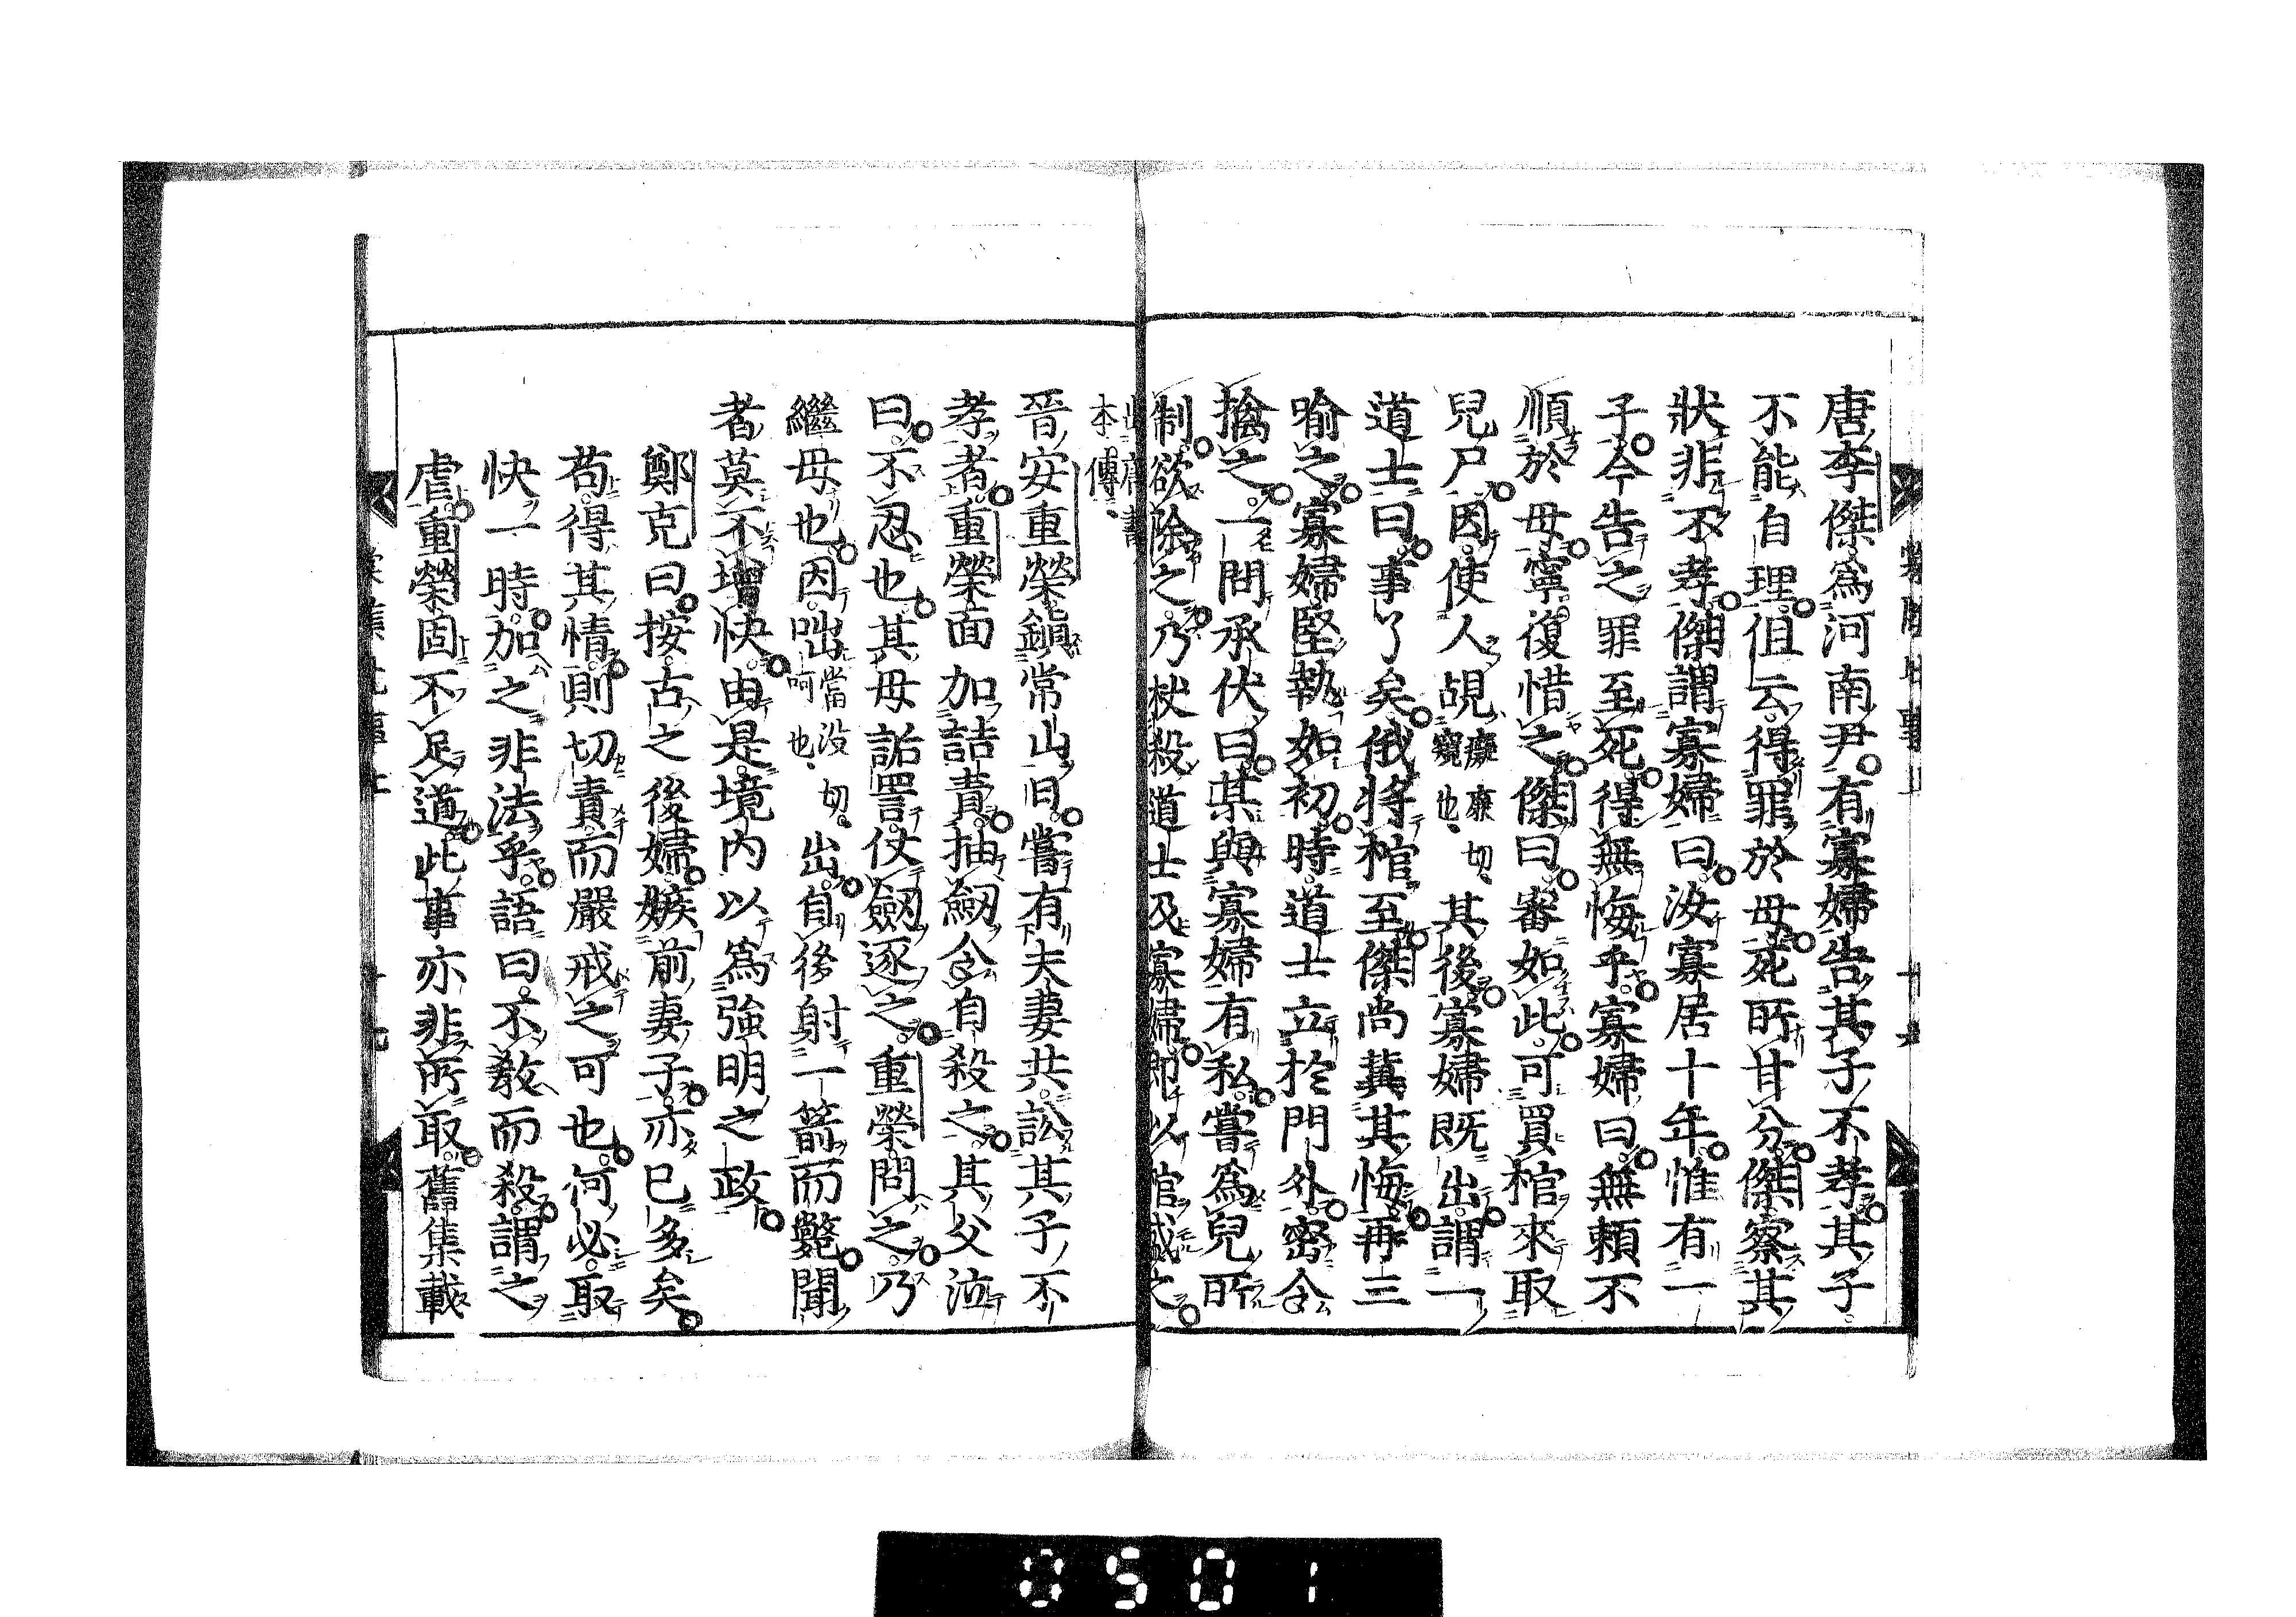 唐李傑爲河南尹有寡婦告其子不孝其子
不能自理但云得罪於母死所甘分傑察其
狀非不孝傑謂寡婦曰汝寡居十年惟有一
子今告之罪至死得無悔乎寡婦曰無賴不
順於母寧復惜之傑曰審如此可買棺來取
兒尸因使人覘癡廉切窺也其後寡婦既出謂一
道士曰事了矣俄將棺至傑尚冀其悔再三
喻之寡婦堅執如初時道士立於門外密令
擒之一問承伏曰某與寡婦有私嘗爲兒所
制欲除之乃杖殺道士及寡婦即以棺盛之
本傳
晉安重榮鎭常山日嘗有夫妻共訟其子不
孝者重榮面加詰責抽劒令自殺之其父泣
曰不忍也其母詬詈仗劒逐之重榮問之乃
繼母也因咄當沒切呵也出自後射一箭而斃聞
者莫不增快由是境内以爲強明之政
鄭克曰按古之後婦嫉前妻子亦已多矣
苟得其情則切責而嚴戒之可也何必取
快一時加之非法乎語曰不敎而殺謂之
虐重榮固不足道此事亦非所取舊集載
0501